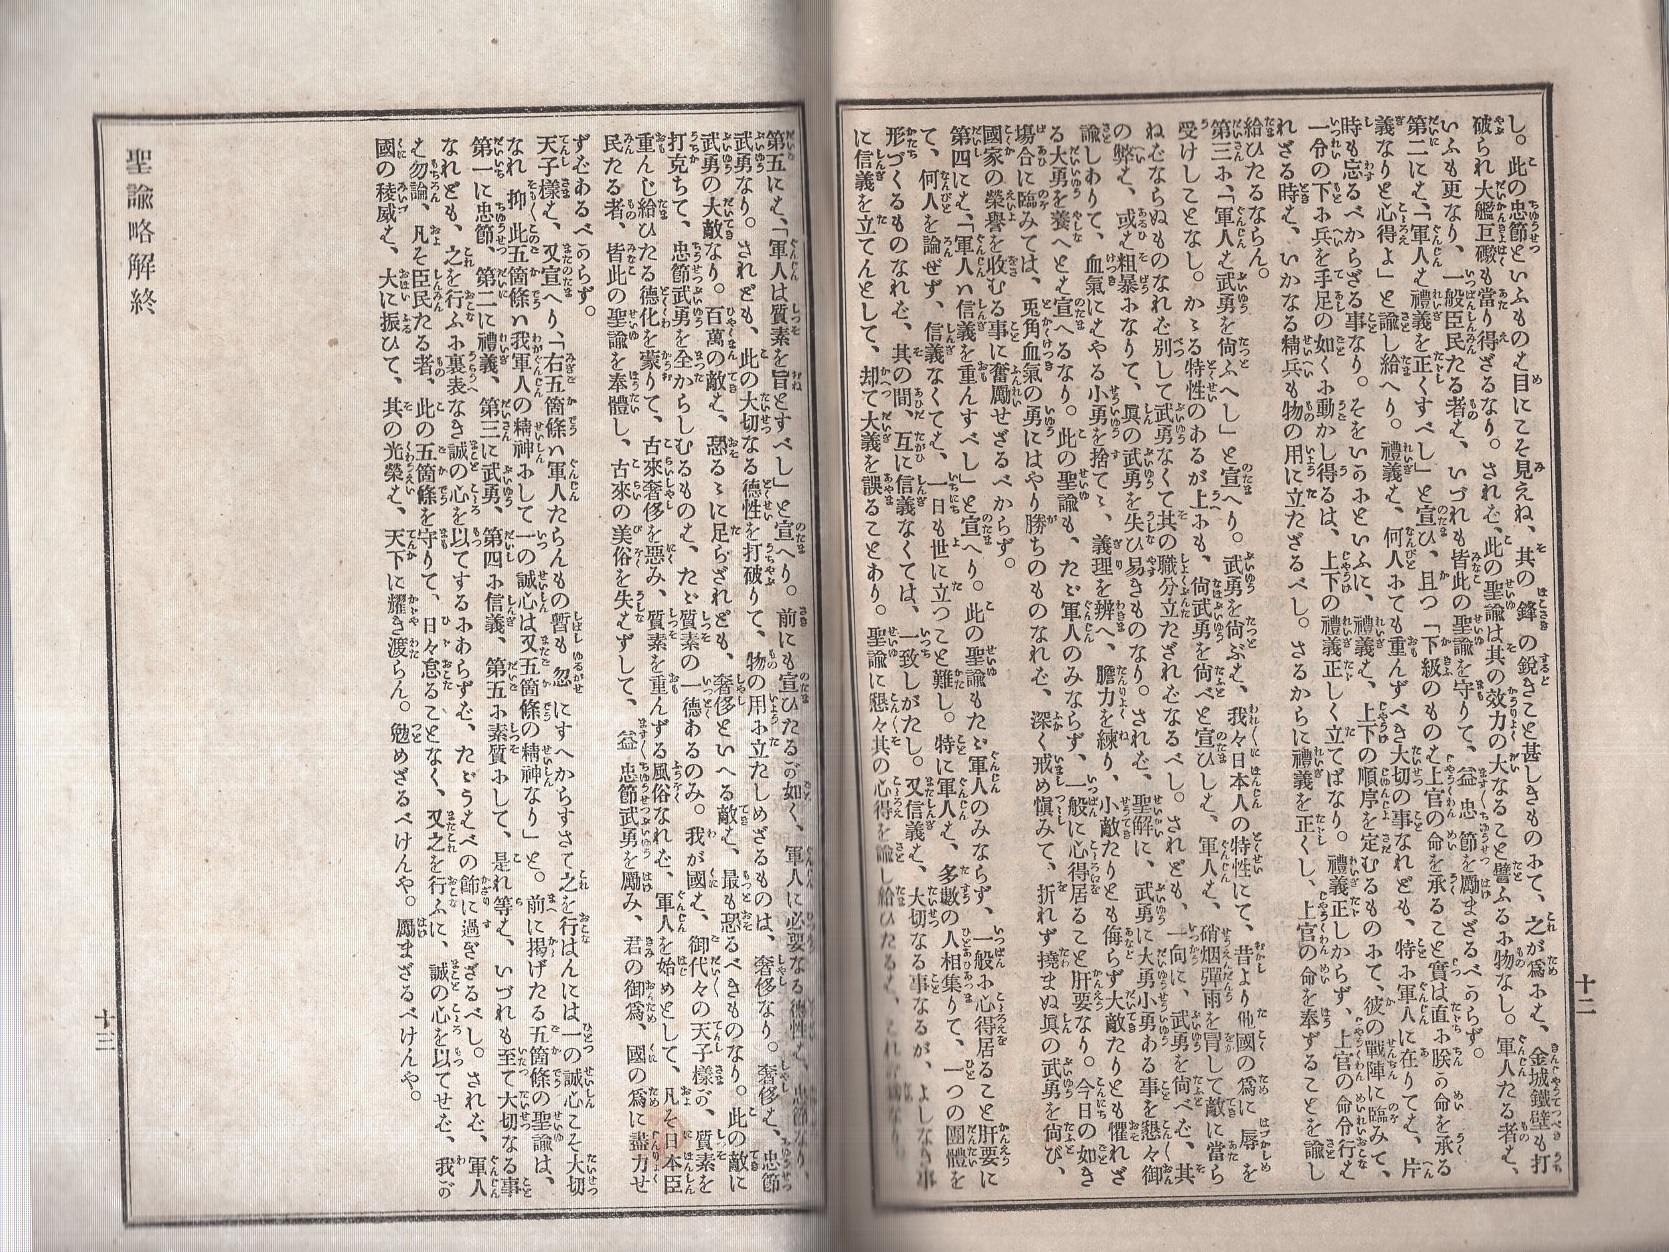 し。此の忠節といふものは目にこそ見えね、其の鋒の鋭きこと甚しきものにて、之が爲には、金城鐵壁も打
破られ大艦巨礮も當り得ざるなり。されば、此の聖諭は其の效力の大なること譬ふるに物なし。軍人たる者は、
いふも更なり、一般臣民たる者は、いづれも皆此の聖諭を守りて、益忠節を勵まざるべからず。
第二には、「軍人は禮義を正くすべし」と宣ひ、且つ「下級のものは上官の命を承ること實は直に朕が命を承る
義なりと心得よ」と諭し給へり。禮義は、何人にても重んずべき大切の事なれども、特に軍人に在りては、片
時も忘るべからざる事なり。そをいかにといふに、禮義は、上下の順序を定むるものにて、彼の戰陣に臨みて、
一令の下に兵を手足の如くに動かし得るは、上下の禮義正しく立てばなり。禮義正しからず、上官の命令行は
れざる時は、いかなる精兵も物の用に立たざるべし。さるからに禮義を正くし、上官の命を奉ずることを諭し
給ひたるならん。
第三に、「軍人は武勇を尙ふへし」と宣へり。武勇を尙ぶは、我々日本人の特性にて、昔より他國の爲に辱を
受けしことなし。かゝる特性のあるが上に、尙武勇を尙べと宣ひしは、軍人は、硝烟彈雨を冒して敵に當ら
ねばならぬものなれば別して武勇なくて其の職分立たざればなるべし。されども、一向に、武勇を尙べば、其
の弊は、或は粗暴になりて、眞の武勇を失ひ易きものなり。されば、聖解に、武勇に大勇小勇ある事を懇々御
諭しありて、血氣にはやる小勇を捨てゝ、義理を辨へ、膽力を練り、小敵たりとも侮らず大敵たりとも懼れざ
る大勇を養へとは宣へるなり。此の聖諭も、たゞ軍人のみならず、一般に心得居ること肝要なり。今日の如き
塲合に臨みては、兎角血氣の勇にはやり勝ちのものなれば、深く戒め愼みて、折れず撓まぬ眞の武勇を尙び、
國家の榮譽を收むる事に奮勵せざるべからず。
第四には、「軍人ハ信義を重んすべし」と宣へり。此の聖諭もたゞ軍人のみならず、一般に心得居ること肝要に
て、何人を論ぜず、信義なくては、一日も世に立つこと難し。特に軍人は、多數の人相集りて、一つの團體を
形づくるものなれば、其の間、互に信義なくては、一致しがたし。又信義は、大切なる事なるが、よしなき事
に信義を立てんとして、却て大義を誤ることあり。聖諭に懇々其の心得を諭し給ひたるは、
十二
第五には、「軍人は質素を旨とすべし」と宣へり。前にも宣ひたるが如く、軍人に必要なる德性は、忠節なり、
武勇なり。されども、此の大切なる德性を打破りて、物の用に立たしめざるものは、奢侈なり。奢侈は、忠節
武勇の大敵なり。百萬の敵は、恐るゝに足らざれども、奢侈といへる敵は、最も恐るべきものなり。此の敵に
打克ちて、忠節武勇を全からしむるものは、たゞ質素の一德あるのみ。我が國は、御代々の天子樣が、質素を
重んじ給ひたる德化を蒙りて、古來奢侈を惡み、質素を重んずる風俗なれば、軍人を始めとして、凡そ日本臣
民たる者、皆此の聖諭を奉體し、古來の美俗を失はずして、益忠節武勇を勵み、君の御爲、國の爲に盡力せ
ずばあるべからず。
天子樣は、又宣へり、「右五箇條ハ軍人たらんもの暫も忽にすへからすさて之を行はんには一の誠心こそ大切
なれ抑此五箇條ハ我軍人の精神にして一の誠心は又五箇條の精神なり」と。前に揭げたる五箇條の聖諭は、
第一に忠節、第二に禮義、第三に武勇、第四に信義、第五に素質にして、是れ等は、いづれも至て大切なる事
なれども、之を行ふに裏表なき誠の心を以てするにあらずば、たゞうはべの飾に過ぎざるべし。されば、軍人
は勿論、凡そ臣民たる者、此の五箇條を守りて、日々怠ることなく、又之を行ふに、誠の心を以てせば、我が
國の稜威は、大に振ひて、其の光榮は、天下に耀き渡らん。勉めざるべけんや。勵まざるべけんや。
聖諭略解終
十三